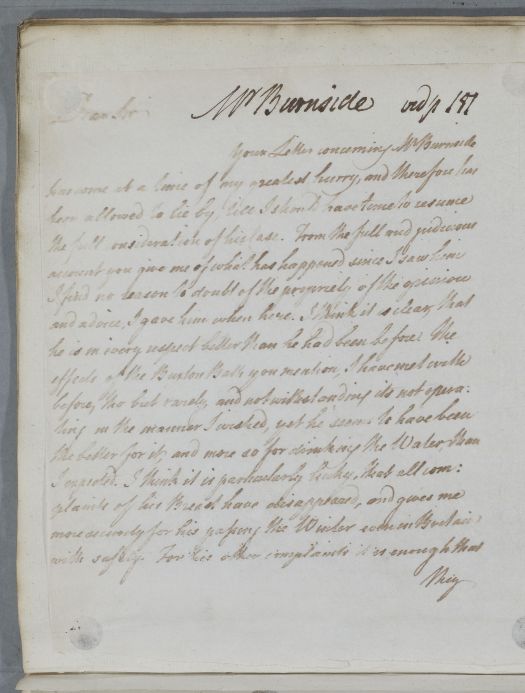 Mr Burnside vid p 187
Dear Sir
Your Letter concerning Mr Burnside
has come at a time of my greatest hurry, and therefore has
been allowed to lie by, till I should have time to resume
the full consideration of his Case. From the full and judicious
account you give me of what has happened since I saw him
I find no reason to doubt of the propriety of the opinion
and advice, I gave him when here. I think it is clear, that
he is in every respect better than he had been before. The
effects of the Buxton Bath you mention, I have met with
before, tho but rarely, and notwithstanding its not opera:
ting in the manner I wished, yet he seems to have been
the better for it, and more so for drinking the Water, than
I expected. I think it is particularly lucky, that all com:
plaints of his Breast have disappeared, and gives me
more security for his passing the Winter even in Britain
with safety. For his other complaints it is enough that
they